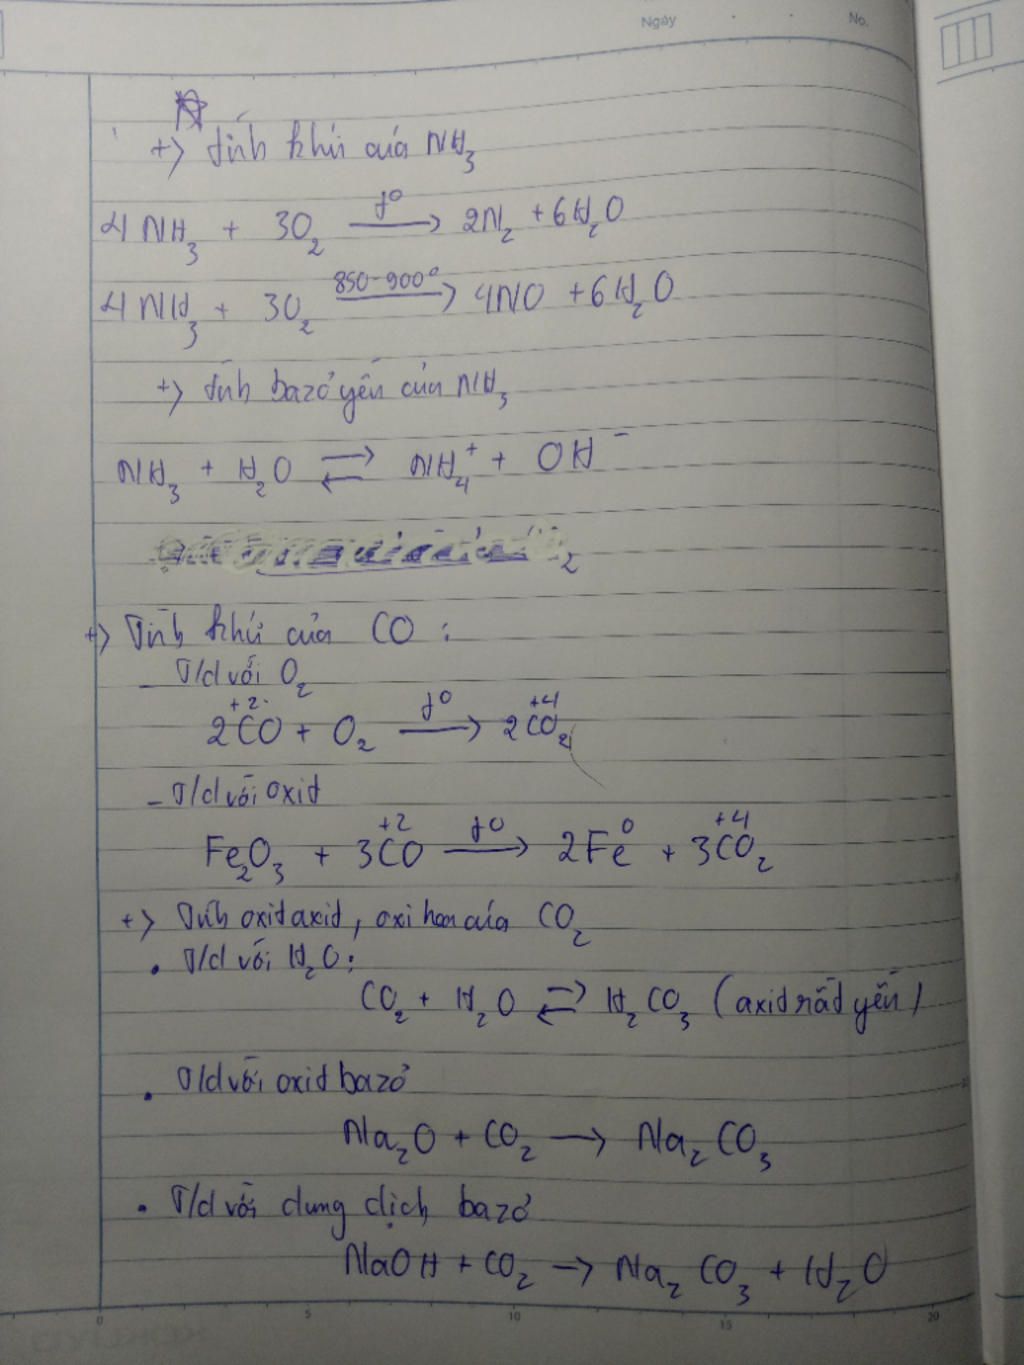 Ngày No.
+> tính khử của NH₃
4NH₃ + 3O₂ —t⁰→ 2N₂ + 6H₂O
4NH₃ + 3O₂ —850-900⁰→ 4NO + 6H₂O
+> tính bazơ yếu của NH₃
NH₃ + H₂O ⇌ NH₄⁺ + OH⁻
+> Tính khử của CO :
- T/d với O₂
+2 +4
2CO + O₂ —t⁰→ 2CO₂
- T/d với oxit
+2 0 +4
Fe₂O₃ + 3CO —t⁰→ 2Fe + 3CO₂
+> Tính oxit axit, oxi hoa của CO₂
• T/d với H₂O:
CO₂ + H₂O ⇌ H₂CO₃ (axit rất yếu)
• T/d với oxit bazơ
Na₂O + CO₂ → Na₂CO₃
• T/d với dung dịch bazơ
NaOH + CO₂ → Na₂CO₃ + H₂O
0 5 10 15 20